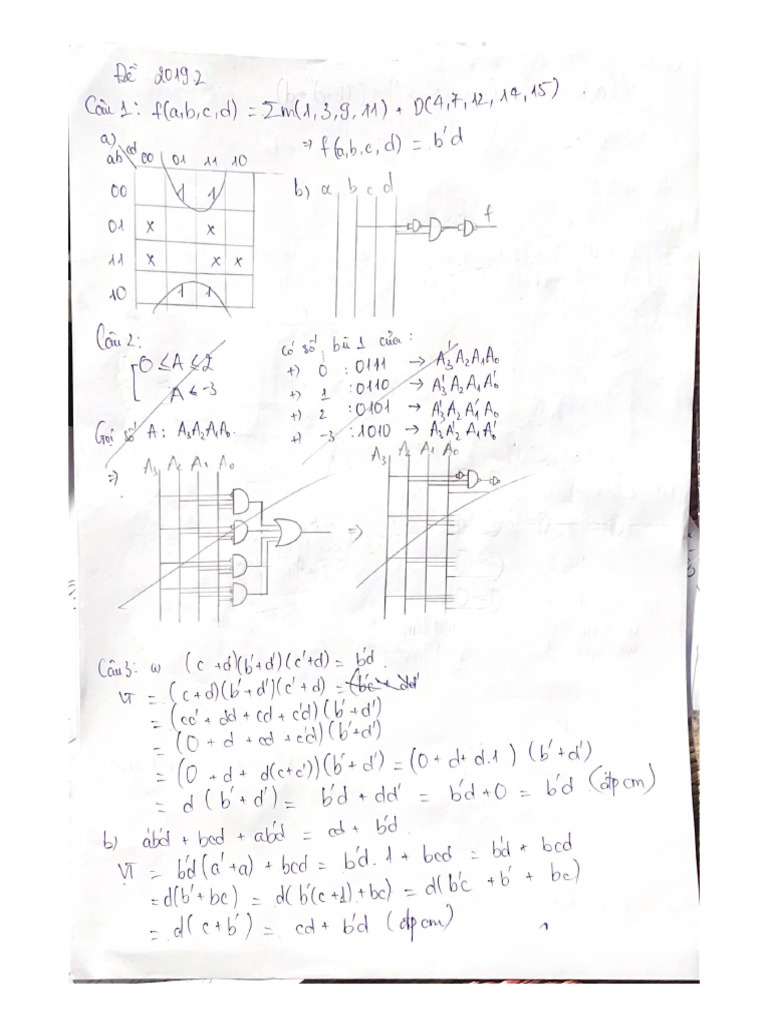 Đề 2019.2
Câu 1: f(a,b,c,d) = Σm(1,3,9,11) + D(4,7,12,14,15)
a)
⇒ f(a,b,c,d) = b'd
ab\cd 00 01 11 10
00 1 1
01 x x
11 x x x
10 1 1
b) a b c d
f
Câu 2:
0 ≤ A ≤ 2
A < -3
Gọi số A: A₃A₂A₁A₀
có số bù 1 của:
+) 0 : 0111 → A₃'A₂A₁A₀
+) 1 : 0110 → A₃'A₂A₁A₀'
+) 2 : 0101 → A₃'A₂A₁'A₀
+) -3 : 1010 → A₃'A₂'A₁A₀'
⇒ A₃ A₂ A₁ A₀
⇒ A₃ A₂ A₁ A₀
Câu 3: a) (c + d)(b' + d')(c' + d) = b'd.
VT = (c + d)(b' + d')(c' + d) = (b'c + dd'
= (cc' + dd + cd + c'd)(b' + d')
= (0 + d + cd + c'd)(b' + d')
= (0 + d + d(c + c'))(b' + d') = (0 + d + d.1)(b' + d')
= d(b' + d') = b'd + dd' = b'd + 0 = b'd (đpcm)
b) a'b'd + bcd + ab'd = cd + b'd.
VT = b'd(a' + a) + bcd = b'd.1 + bcd = b'd + bcd
= d(b' + bc) = d(b'(c + 1) + bc) = d(b'c + b' + bc)
= d(c + b') = cd + b'd (đpcm)
1